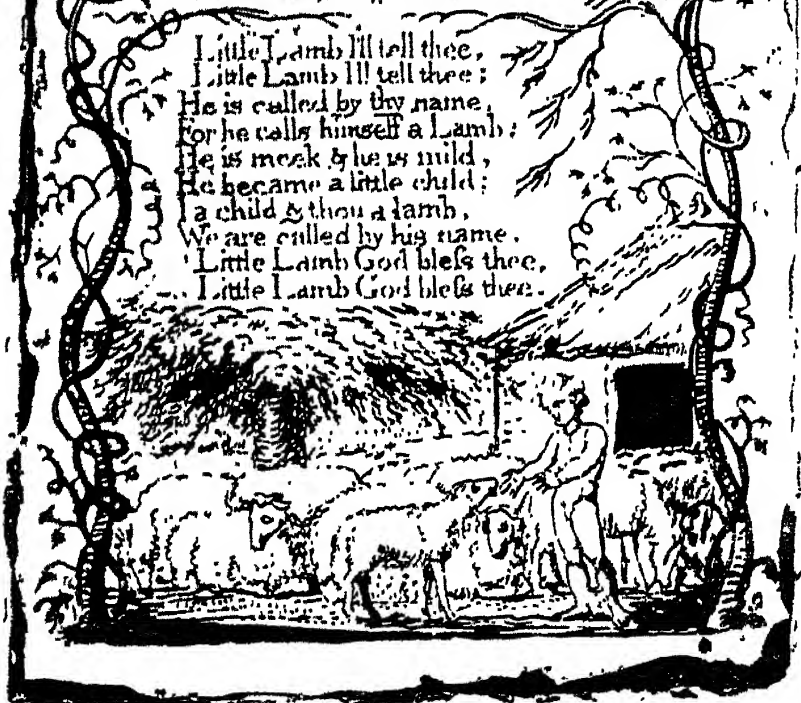 Little Lamb I'll tell thee,
Little Lamb I'll tell thee;
He is called by thy name,
For he calls himself a Lamb:
He is meek & he is mild,
He became a little child:
I a child & thou a lamb,
We are called by his name.
Little Lamb God bleſs thee,
Little Lamb God bleſs thee.